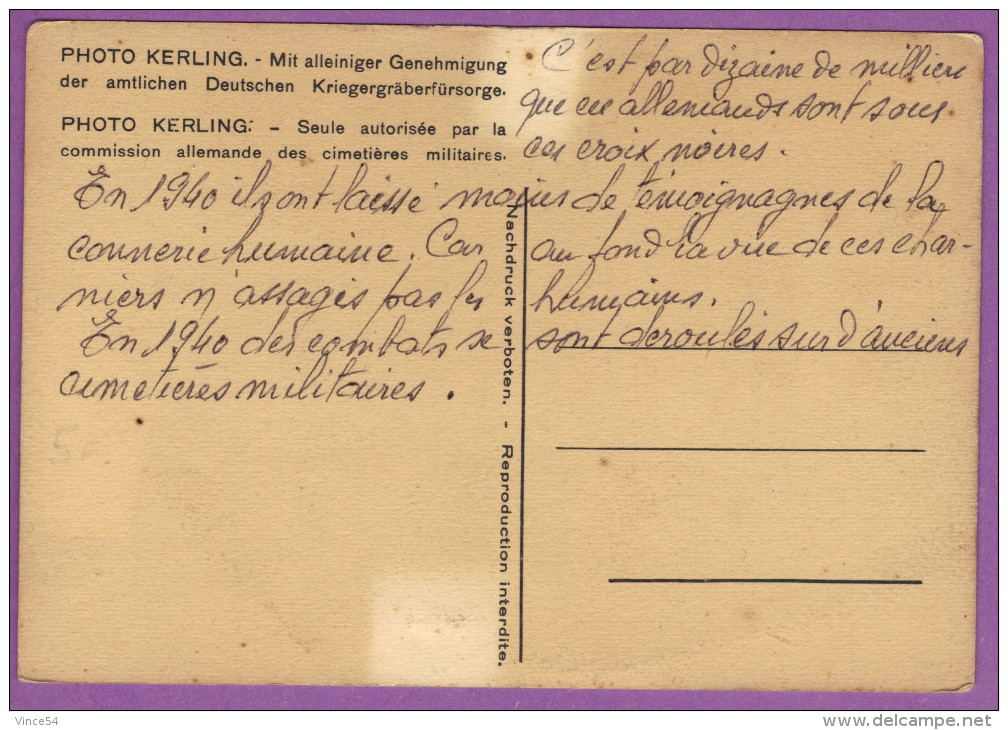 PHOTO KERLING. - Mit alleiniger Genehmigung
der amtlichen Deutschen Kriegergräberfürsorge.
PHOTO KERLING. - Seule autorisée par la
commission allemande des cimetières militaires.
C'est par dizaine de milliers
que ces allemands sont sous
ces croix noires.
En 1940 ils ont laissé moins de témoignagnes de la
connerie humaine. Car au fond la vue de ces char-
niers n'assagis pas les humains.
En 1940 des combats se sont deroulés sur d'anciens
cimetières militaires.
Nachdruck verboten. - Reproduction interdite.
Vince54
www.delcampe.net